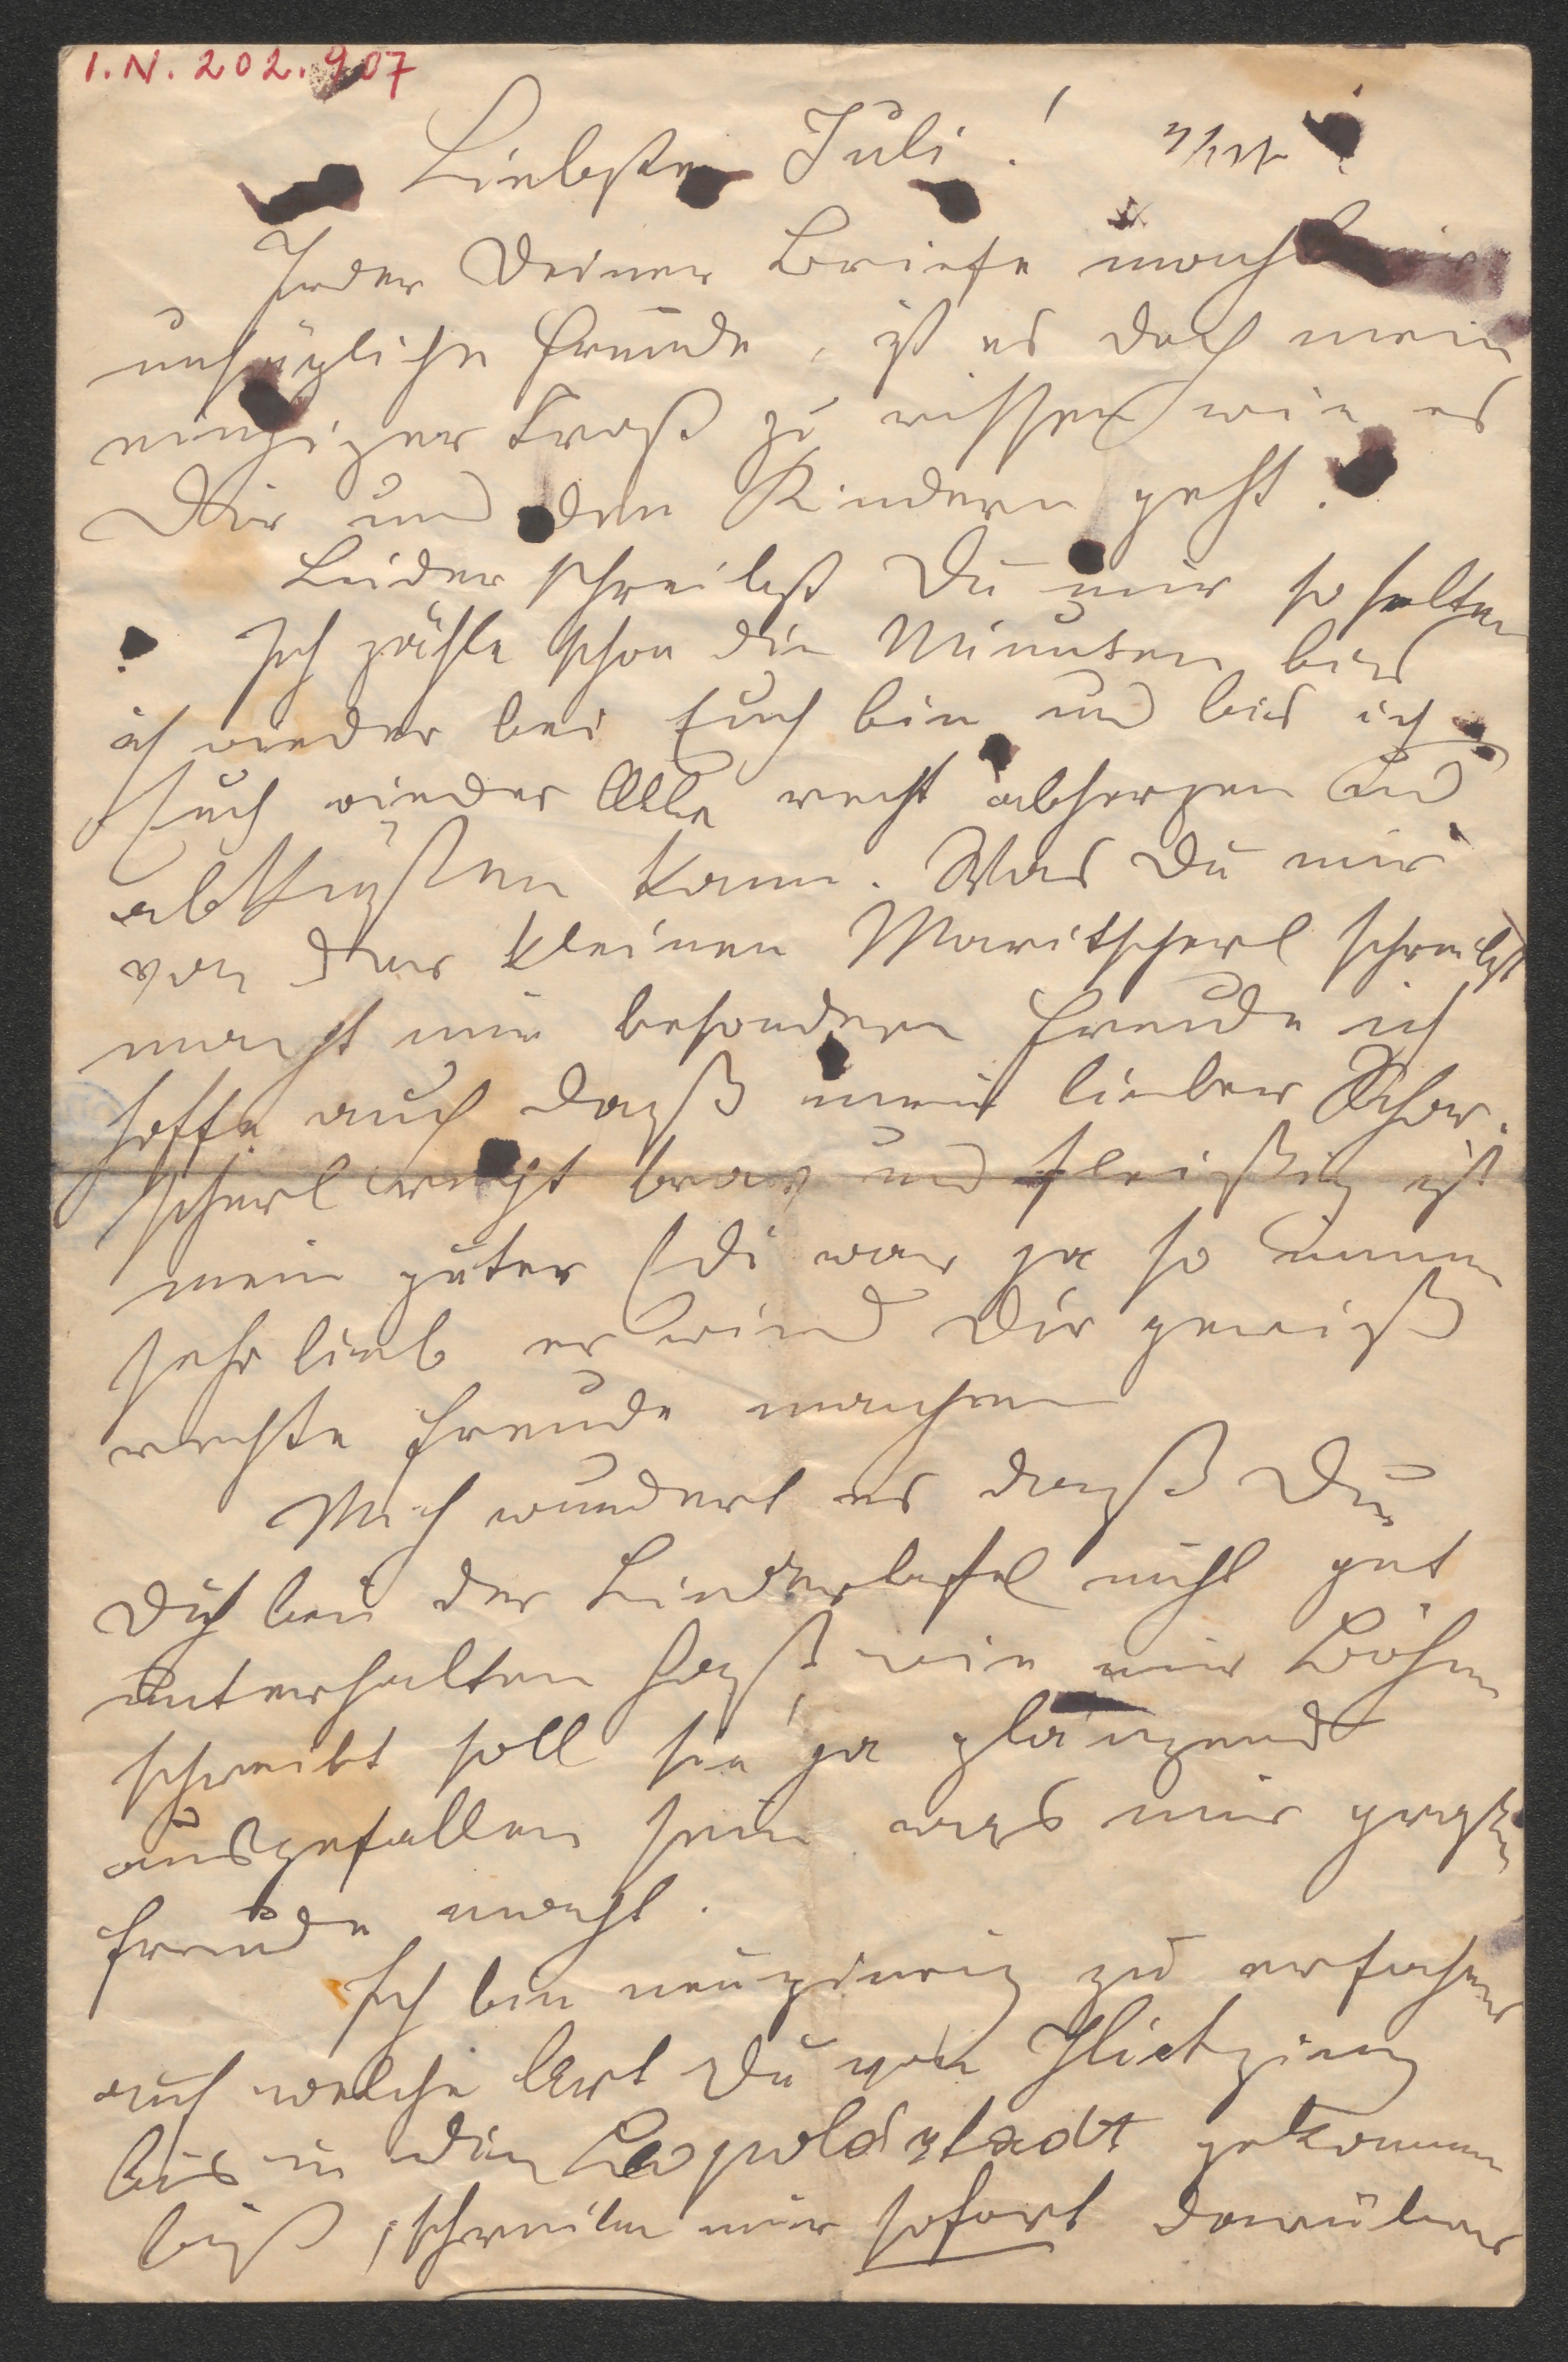 I.N. 202.907
Liebste Juli!
Jeder Deiner Briefe macht mir
unsägliche Freude, ist es doch mein
einziger Trost zu wissen wie es
Dir und den Kindern geht.
Leider schreibst Du mir so selten
Ich zähle schon die Minuten bis
ich wieder bei Euch bin und bis ich
Euch wieder Alle recht abherzen und
abküssen kann. Was Du mir
von der kleinen Maritscherl schreibst
macht mir besondere Freude ich
hoffe auch dass mein lieber
scherl recht brav und fleißig ist
mein guter Edi war ja so immer
sehr lieb er wird Dir gewiß
rechte Freude machen
Mich wundert es dass Du
Dich bei der Liedertafel nicht gut
unterhalten hast, wie mir Böhm
schreibt soll sie ja glänzend
ausgefallen sein was mir große
Freude macht.
Ich bin neugierig zu erfahren
auf welche Art Du von Hietzing
bis in die Leopoldstadt gekommen
bist, schreibe mir sofort darüber